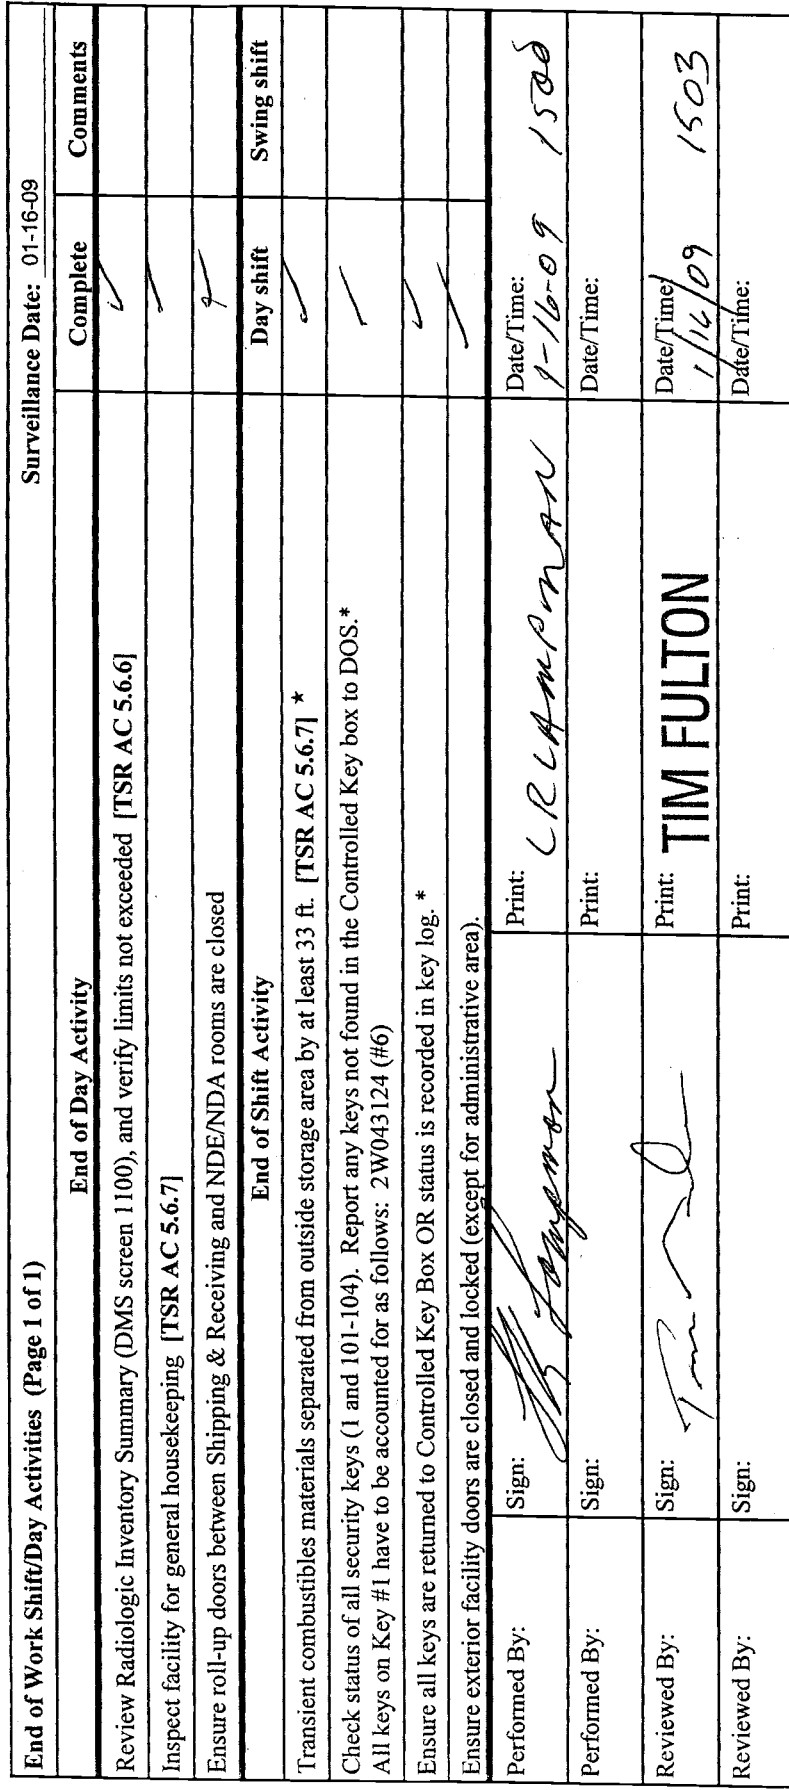 End of Work Shift/Day Activities (Page 1 of 1) Surveillance Date: 01-16-09
End of Day Activity Complete Comments
Review Radiologic Inventory Summary (DMS screen 1100), and verify limits not exceeded [TSR AC 5.6.6] ✓
Inspect facility for general housekeeping [TSR AC 5.6.7] ✓
Ensure roll-up doors between Shipping & Receiving and NDE/NDA rooms are closed ✓
End of Shift Activity Day shift Swing shift
Transient combustibles materials separated from outside storage area by at least 33 ft. [TSR AC 5.6.7] * ✓
Check status of all security keys (1 and 101-104). Report any keys not found in the Controlled Key box to DOS.* ✓
All keys on Key #1 have to be accounted for as follows: 2W043124 (#6)
Ensure all keys are returned to Controlled Key Box OR status is recorded in key log. * ✓
Ensure exterior facility doors are closed and locked (except for administrative area). ✓
Performed By: Sign: Print: LR LAMPMAN Date/Time: 1-16-09 1500
Performed By: Sign: Print: Date/Time:
Reviewed By: Sign: Print: TIM FULTON Date/Time: 1/16/09 1503
Reviewed By: Sign: Print: Date/Time: